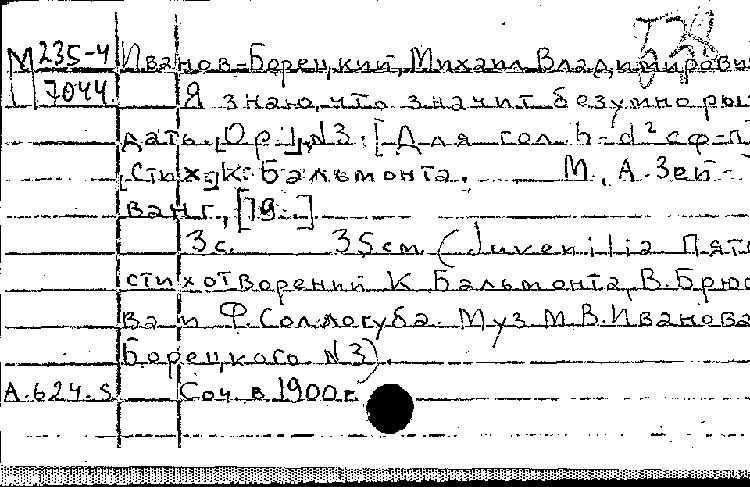 538
М 235-4 Иванов-Борецкий, Михаил Владимирови
7044 Я знаю, что значит безумно ры
дать. [Op.1], N3. [Для гол. h-d² с ф-п
[Стих.] К. Бальмонта. М., А. Зей-
ванг, [19 ].
3с. 35см (Juvenilia. Пять
стихотворений К. Бальмонта, В. Брюсо
ва и Ф. Соллогуба. Муз М.В. Иванова
Борецкаго. N3).
А.624.s Соч. в 1900г.